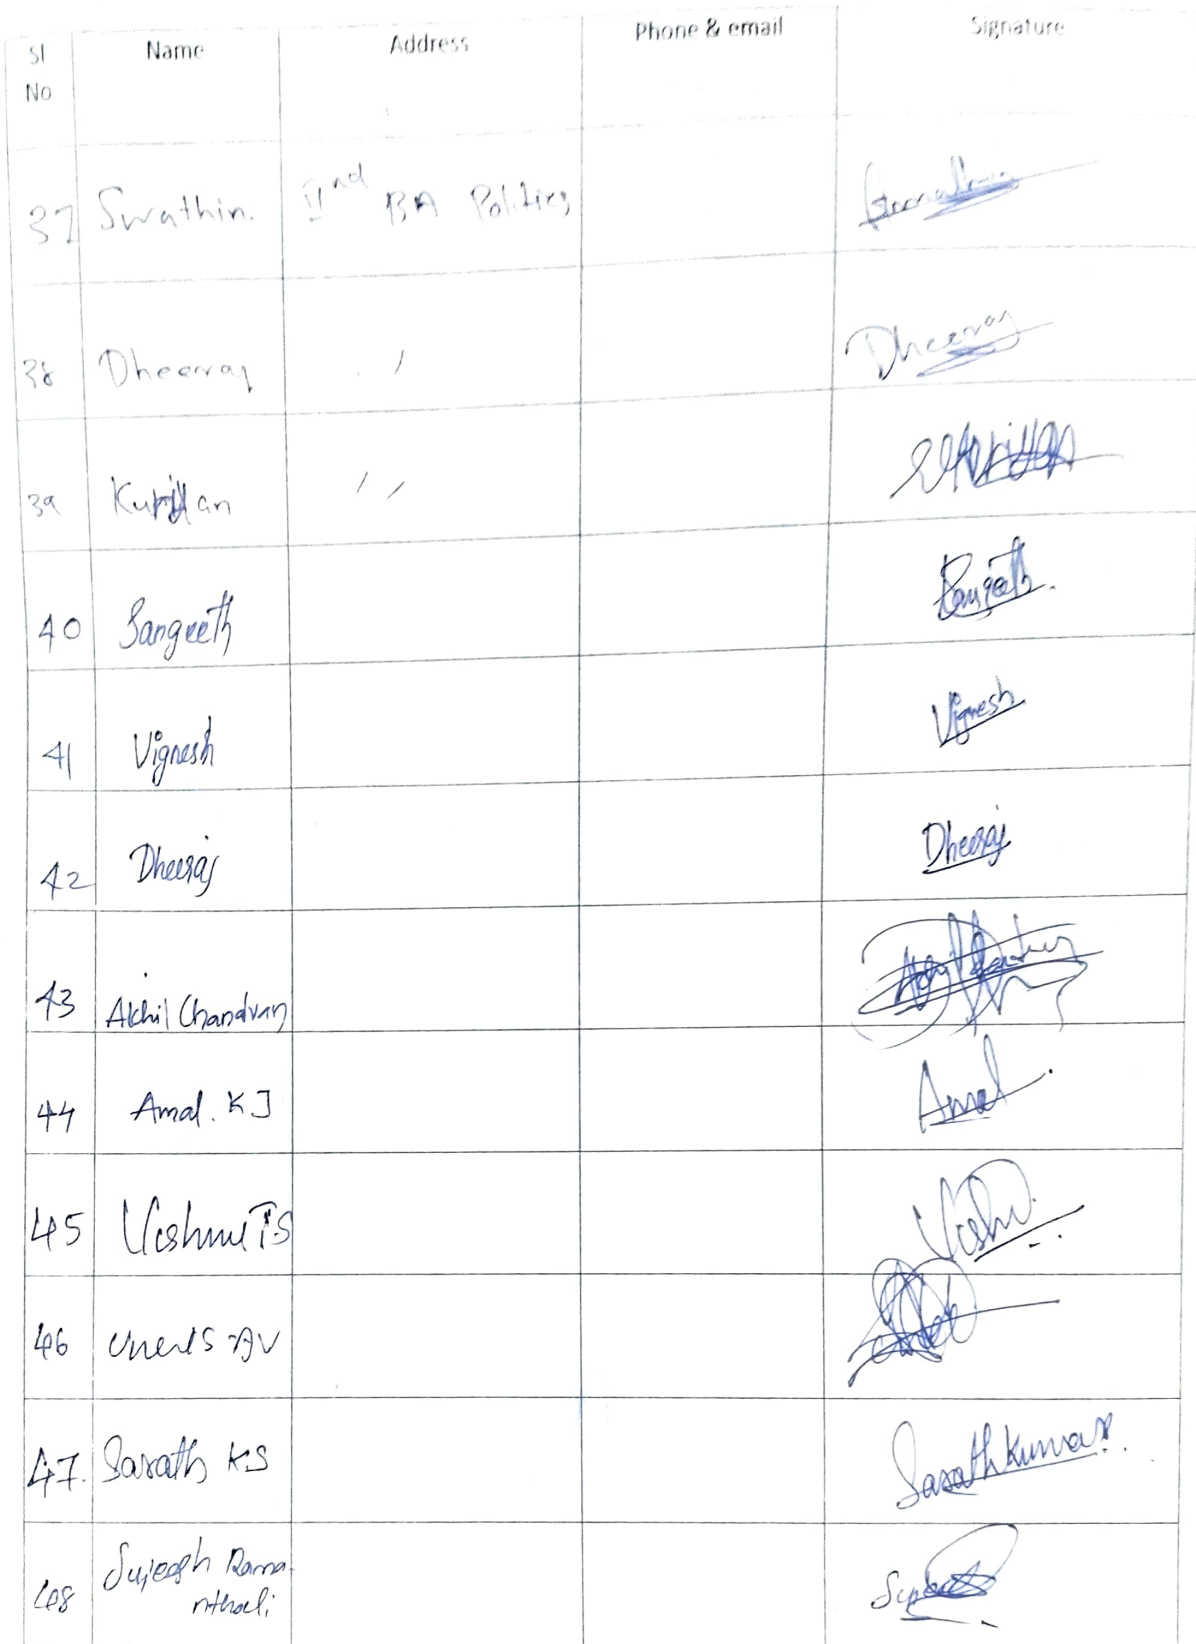 Sl No Name Address Phone & email Signature
37 Swathin. IInd BA Politics
38 Dheeraj 〃 Dheeraj
39 〃
40 Sangeeth Sangeeth.
41 Vignesh Vignesh
42 Dheeraj Dheeraj
43 Akhil Chandran
44 Amal. K J Amal.
45 Vishnu T.S Vishnu
46
47. Sarath KS Sarathkumar.
48 Sujeesh Rama-
nthali